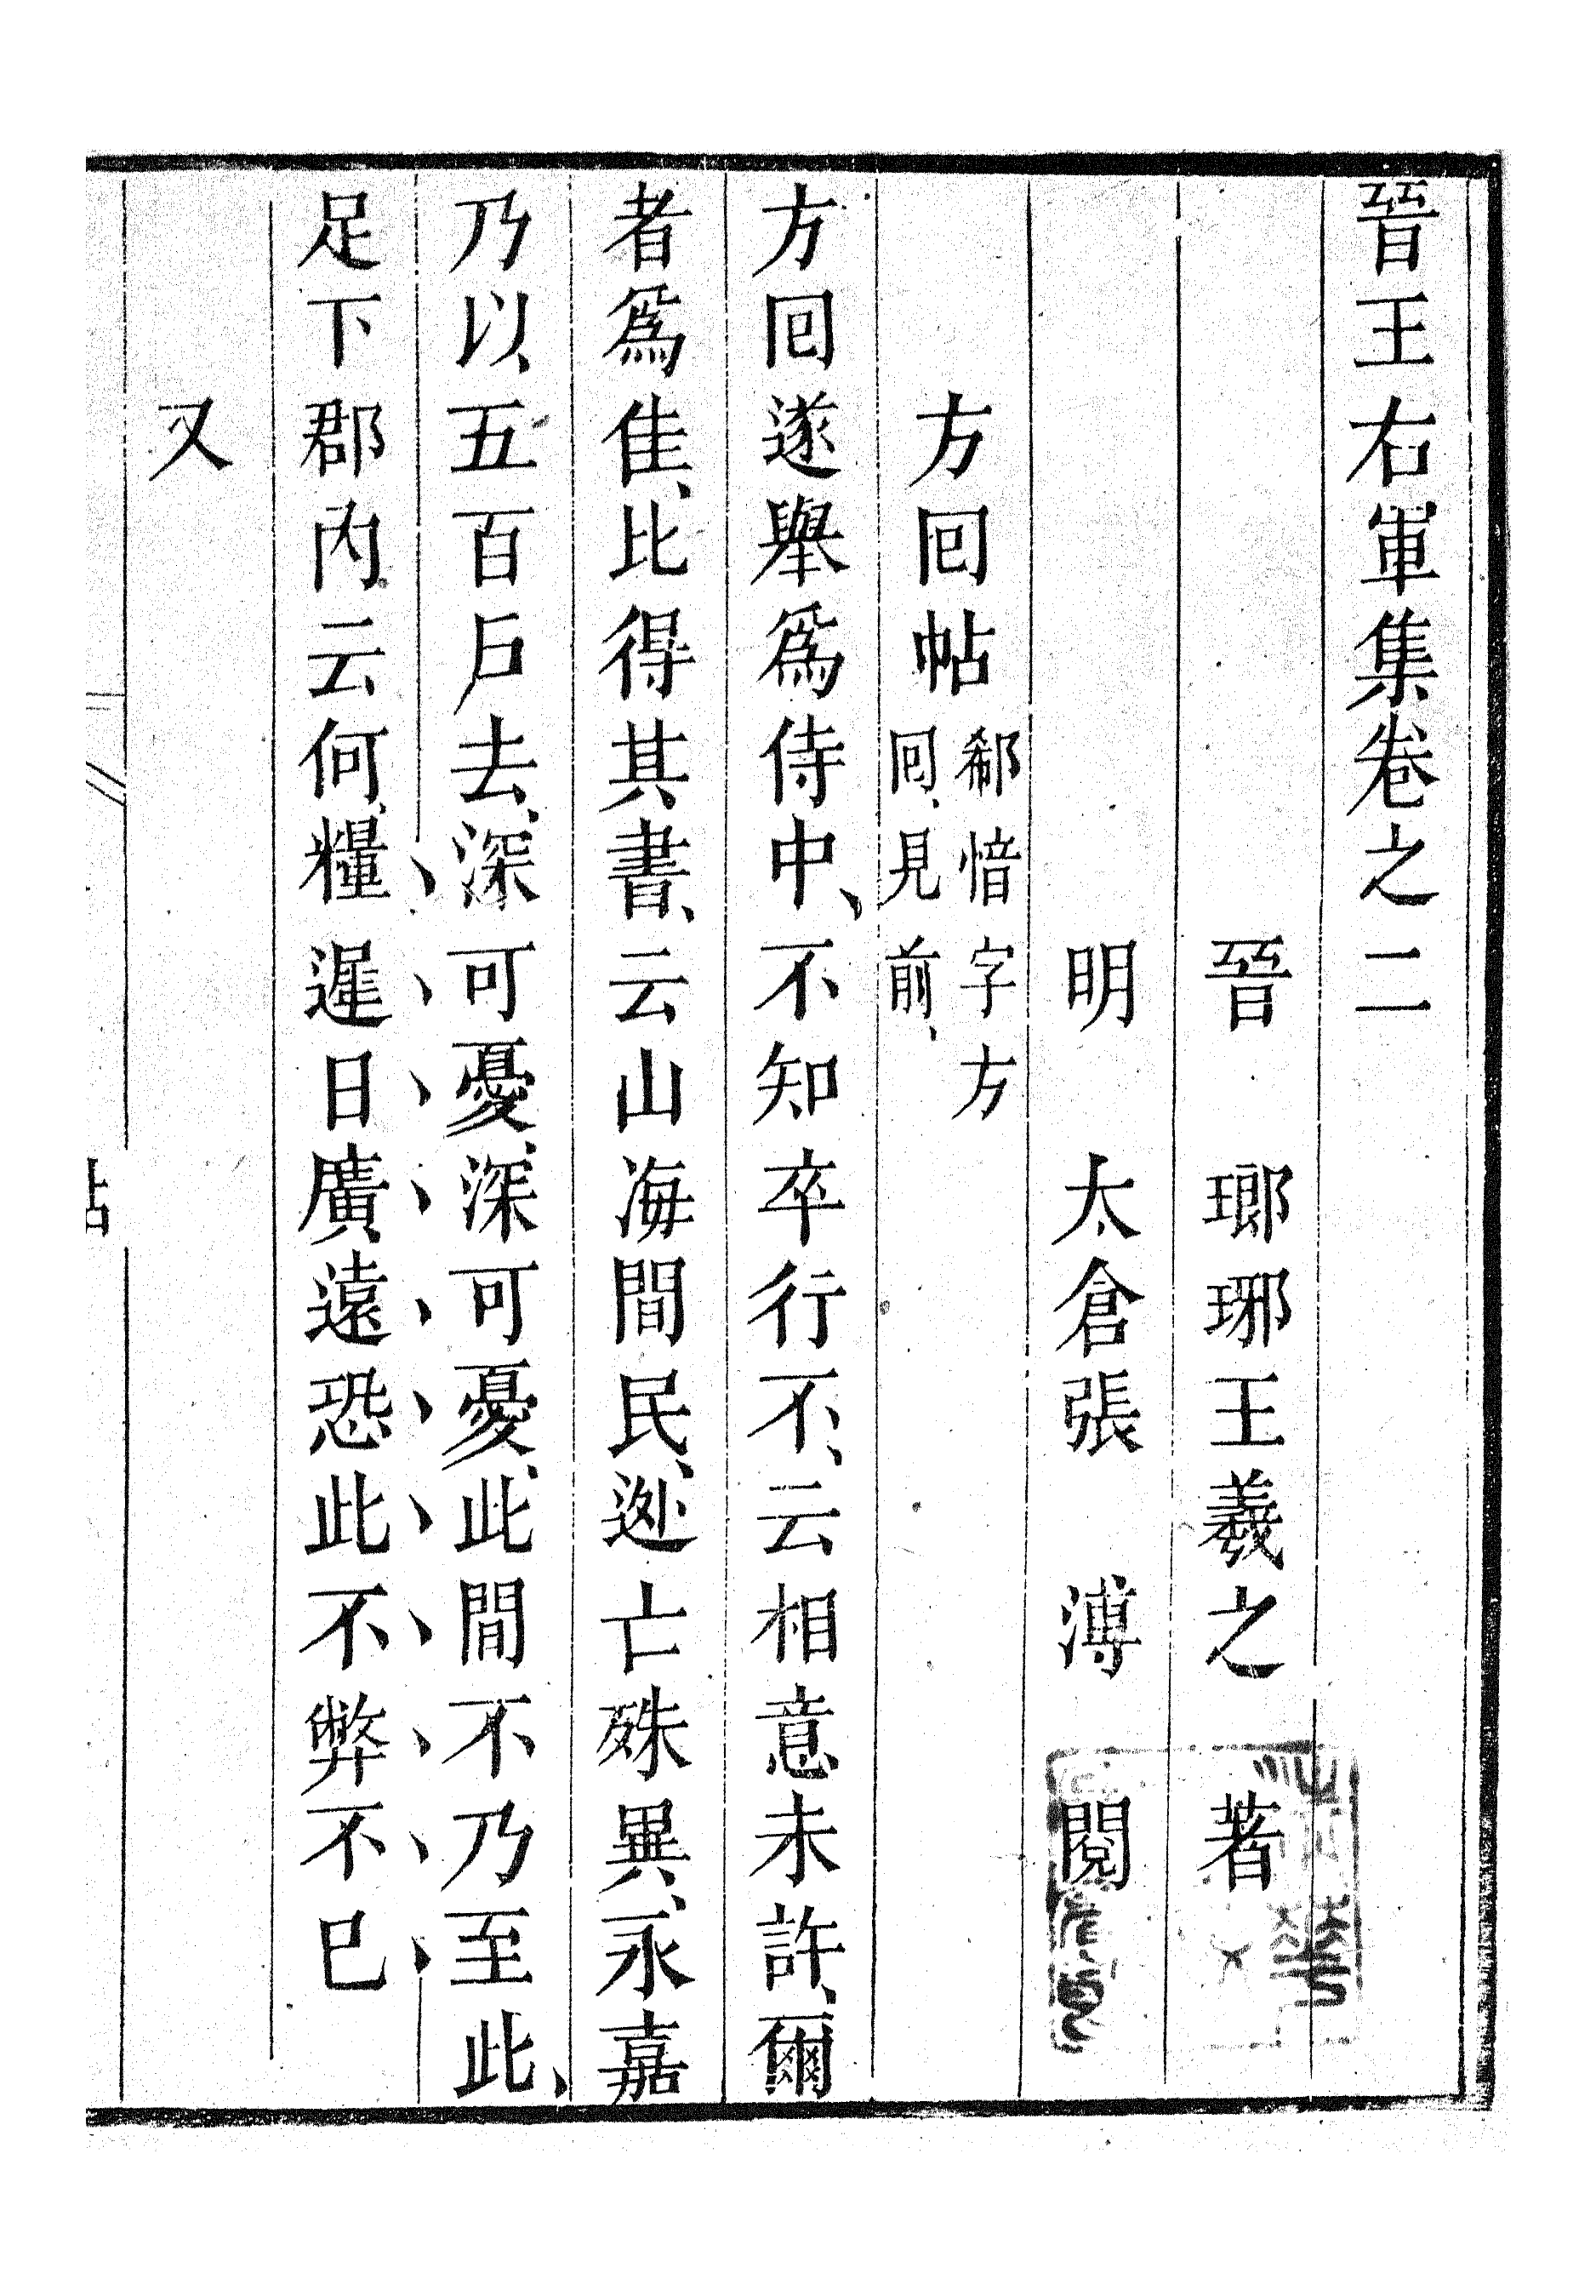 晉王右軍集卷之二
晉 瑯琊王羲之 著
明 太倉張 溥 閱
方回帖
郗愔字方
回、見前、
方回遂舉爲侍中、不知卒行不、云相意未許、爾
者爲佳、比得其書、云山海間民、逃亡殊異、永嘉
乃以五百戶去、深可憂、深可憂、此間不乃至此、
足下郡內云何、糧運日廣遠恐此不弊不已
又